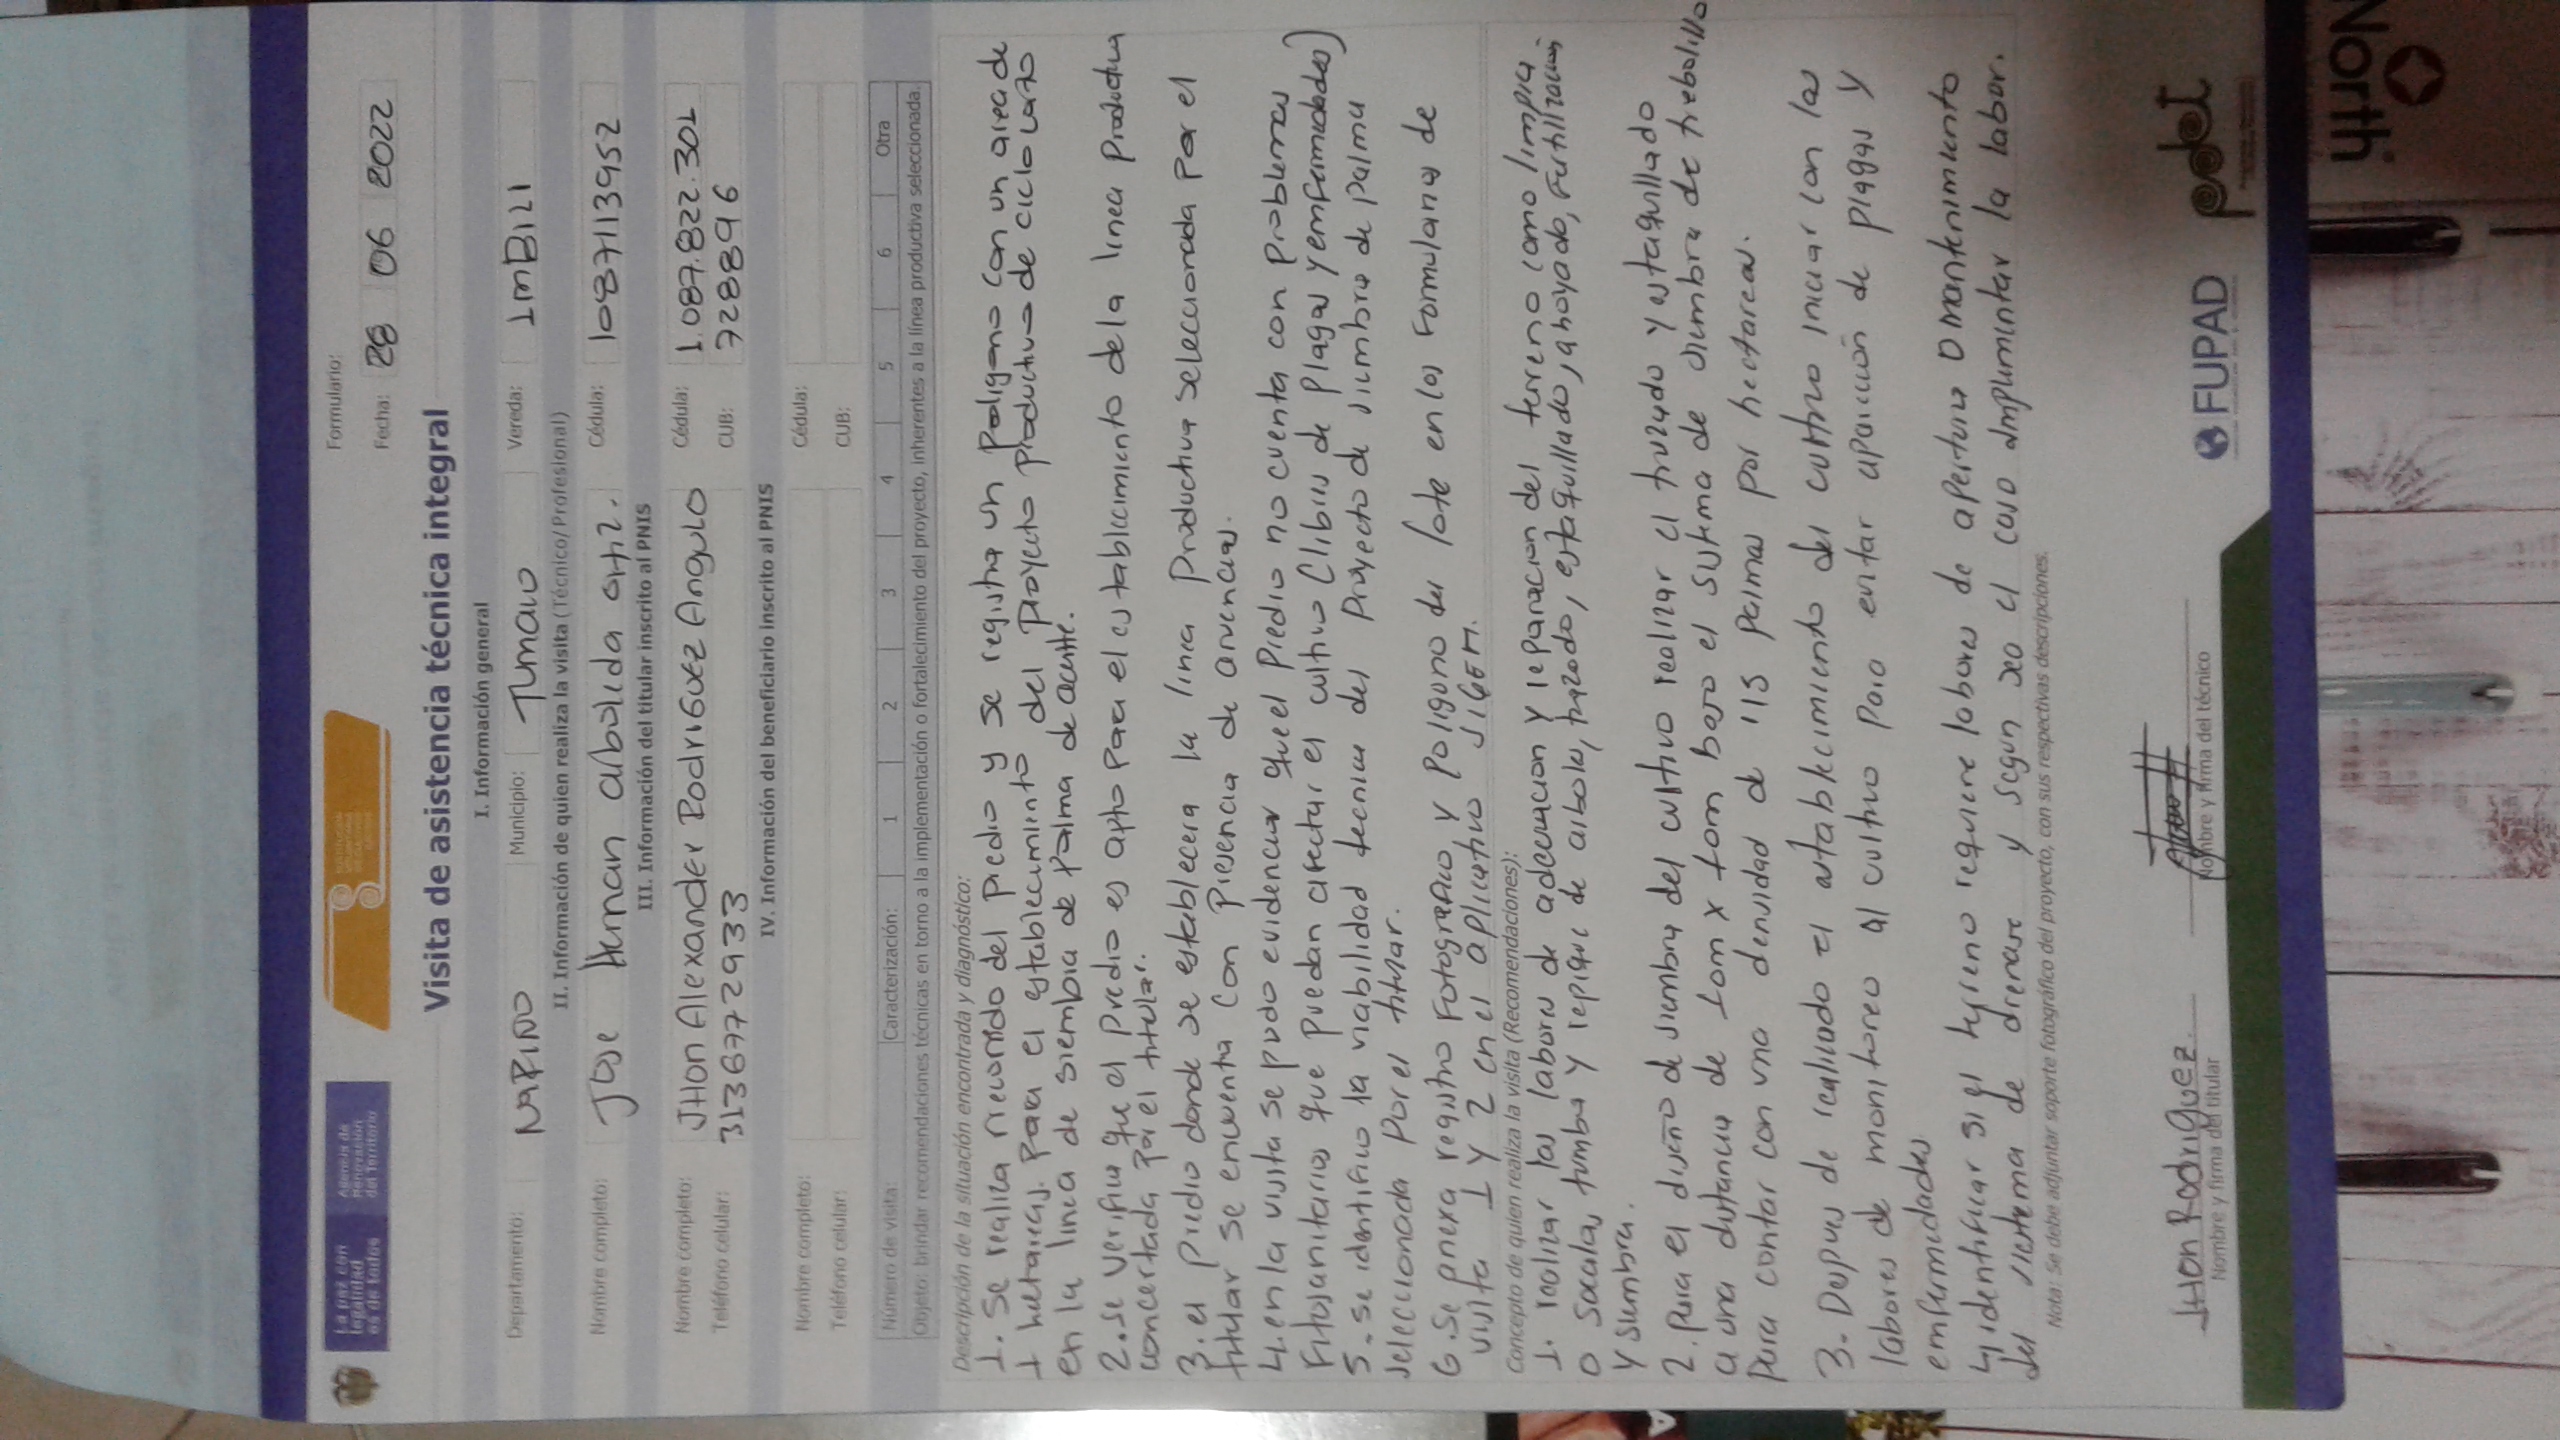 La paz con
legalidad
es de todos
Agencia de
Renovación
del Territorio
Formulario:
Fecha: 28 06 2022
Visita de asistencia técnica integral
I. Información general
Departamento: NARIÑO Municipio: TUMACO Vereda: IMBILI
II. Información de quien realiza la visita (Técnico/Profesional)
Nombre completo: Jose Hernan arboleda ortiz. Cédula: 1087113952
III. Información del titular inscrito al PNIS
Nombre completo: JHON Alexander Rodriguez Angulo Cédula: 1.087.822.301
Teléfono celular: 3136772933 CUB: 728896
IV. Información del beneficiario inscrito al PNIS
Nombre completo: Cédula:
Teléfono celular: CUB:
Número de visita: Caracterización: 1 2 3 4 5 6 Otra
Objeto: brindar recomendaciones técnicas en torno a la implementación o fortalecimiento del proyecto, inherentes a la línea productiva seleccionada.
Descripción de la situación encontrada y diagnóstico:
1. Se realiza recorrido del predio y se registra un poligono con un area de
1 hectareas. Para el establecimiento del proyecto productivo de ciclo corto
en la linea de siembra de palma de aceite.
2. se verifica que el predio es apto para el establecimiento de la linea productiva
concertada por el titular.
3. el predio donde se establecera la linea productiva seleccionada por el
titular se encuentra con presencia de arvencias.
4. en la visita se pudo evidenciar que el predio no cuenta con problemas
Fitosanitarios que puedan afectar el cultivo (libre de plagas y enfermedades)
5. se identifico la viabilidad tecnica del proyecto de siembra de palma
seleccionada por el titular.
6. Se genera registro Fotografico y poligono del lote en los formularios de
visita 1 y 2 en el aplicativo SIGEM.
Concepto de quien realiza la visita (Recomendaciones):
1. realizar las labores de adecuacion y reparacion del terreno como limpia
o socala, tumba y repique de arboles, trazado, estaquillado, ahoyado, Fertilizacion
y siembra.
2. para el diseño de siembra del cultivo realizar el trazado y estaquillado
a una distancia de 10m x 10m bajo el sistema de siembra de trebolillo
para contar con una densidad de 115 palmas por hectareas.
3. Despues de realizado el establecimiento del cultivo iniciar con las
labores de monitoreo al cultivo para evitar aparicion de plagas y
enfermedades
4. identificar si el terreno requiere labores de apertura o mantenimiento
del sistema de drenare y segun sea el caso implementar la labor.
Nota: Se debe adjuntar soporte fotográfico del proyecto, con sus respectivas descripciones.
JHon RodRiguez.
Nombre y firma del titular
Nombre y firma del técnico
FUPAD
pdet
North